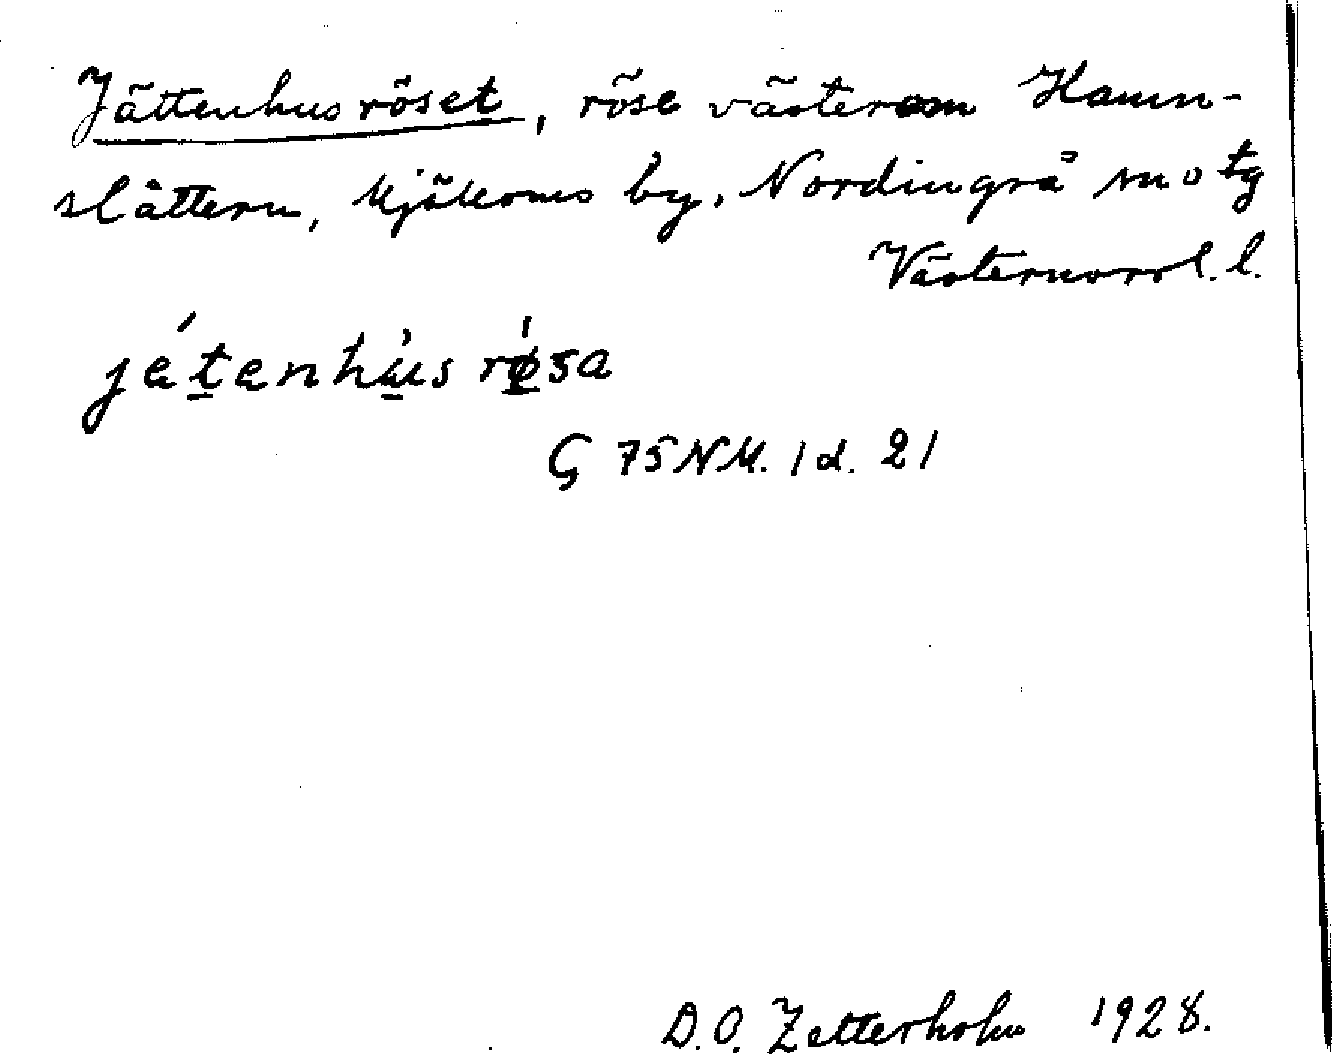 Jättenhusröset, röse västerom Hamn-
slåttern, Kjäkoms by, Nordingrå sn o tg
Västernorrl. l.
jätenhús rø̀sa
G 75 NM. 1 d. 21
D.O. Zetterholm 1928.